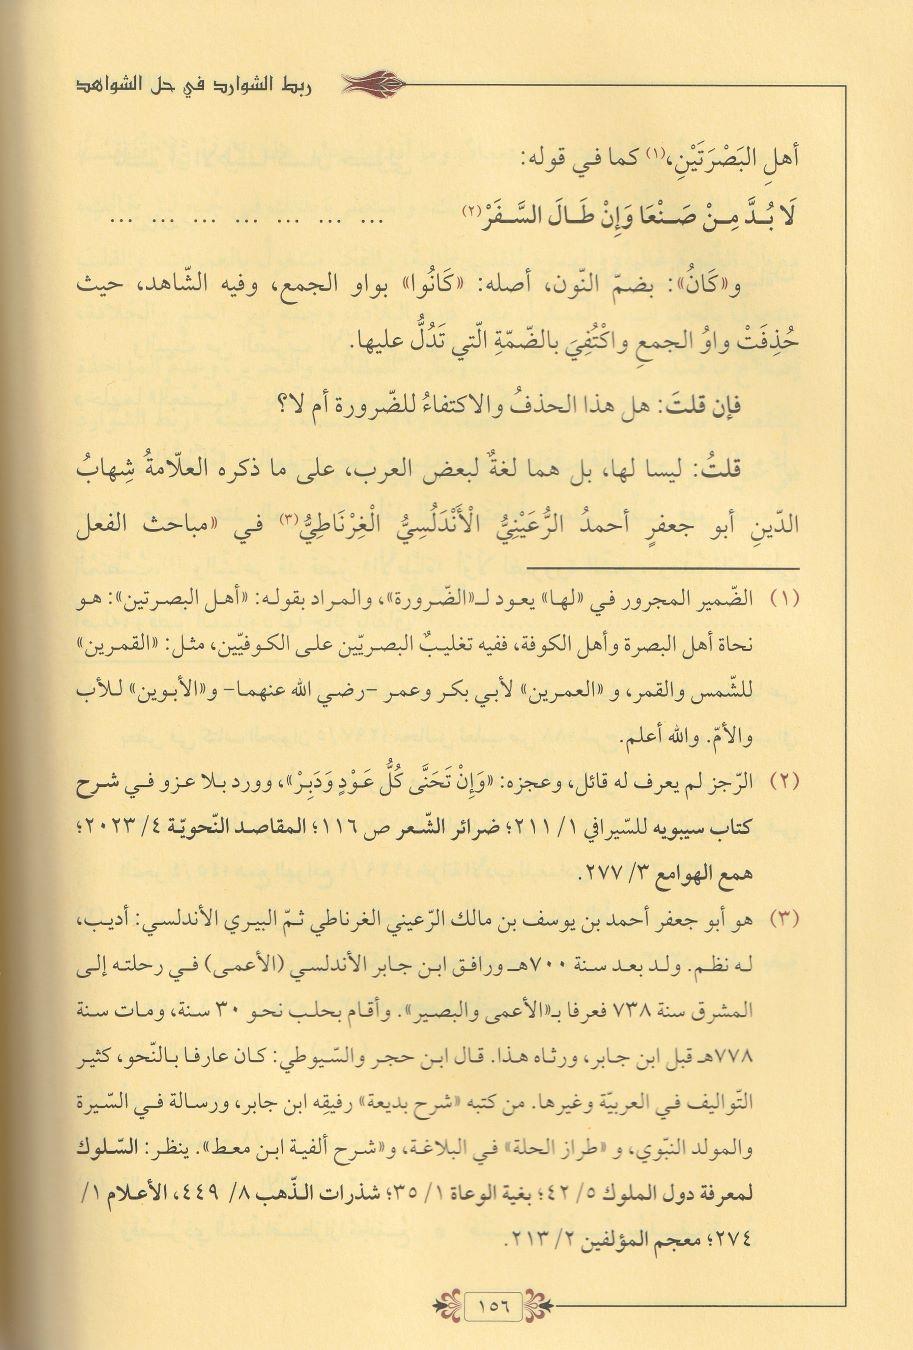 ربط الشوارد في حل الشواهد
أهلِ البَصْرَتَيْنِ،(١) كما في قوله:
لَا بُدَّ مِنْ صَنْعَا وَإِنْ طَالَ السَّفَرْ(٢) ... ... ... ... ... ... ...
و«كَانُ»: بضمّ النّون، أصله: «كَانُوا» بواو الجمع، وفيه الشّاهد، حيث
حُذِفَتْ واوُ الجمعِ واكْتُفِيَ بالضّمّةِ الّتي تَدُلُّ عليها.
فإن قلتَ: هل هذا الحذفُ والاكتفاءُ للضّرورة أم لا؟
قلتُ: ليسا لها، بل هما لغةٌ لبعض العرب، على ما ذكره العلّامةُ شِهابُ
الدّينِ أبو جعفرٍ أحمدُ الرُّعَيْنِيُّ الْأَنْدَلُسِيُّ الْغِرْنَاطِيُّ(٣) في «مباحث الفعل
(١) الضّمير المجرور في «لها» يعود لـ«الضّرورة»، والمراد بقوله: «أهل البصرتين»: هو
نحاة أهل البصرة وأهل الكوفة، ففيه تغليبٌ البصريّين على الكوفيّين، مثل: «القمرين»
للشّمس والقمر، و «العمرين» لأبي بكر وعمر -رضي الله عنهما- و«الأبوين» للأب
والأمّ. والله أعلم.
(٢) الرّجز لم يعرف له قائل، وعجزه: «وَإِنْ تَحَنَّى كُلُّ عَوْدٍ وَدَبِرْ»، وورد بلا عزو في شرح
كتاب سيبويه للسّيرافي ١/ ٢١١؛ ضرائر الشّعر ص ١١٦؛ المقاصد النّحويّة ٤/ ٢٠٢٣؛
همع الهوامع ٣/ ٢٧٧.
(٣) هو أبو جعفر أحمد بن يوسف بن مالك الرّعيني الغرناطي ثمّ البيري الأندلسي: أديب،
له نظم. ولد بعد سنة ٧٠٠هـ ورافق ابن جابر الأندلسي (الأعمى) في رحلته إلى
المشرق سنة ٧٣٨ فعرفا بـ«الأعمى والبصير». وأقام بحلب نحو ٣٠ سنة، ومات سنة
٧٧٨هـ قبل ابن جابر، ورثاه هذا. قال ابن حجر والسّيوطي: كان عارفا بالنّحو، كثير
التّواليف في العربيّة وغيرها. من كتبه «شرح بديعة» رفيقِه ابن جابر، ورسالة في السّيرة
والمولد النّبوي، و «طراز الحلة» في البلاغة، و«شرح ألفية ابن معط». ينظر: السّلوك
لمعرفة دول الملوك ٥/ ٤٢؛ بغية الوعاة ١/ ٣٥؛ شذرات الذّهب ٨/ ٤٤٩، الأعلام ١/
٢٧٤؛ معجم المؤلفين ٢/ ٢١٣.
١٥٦